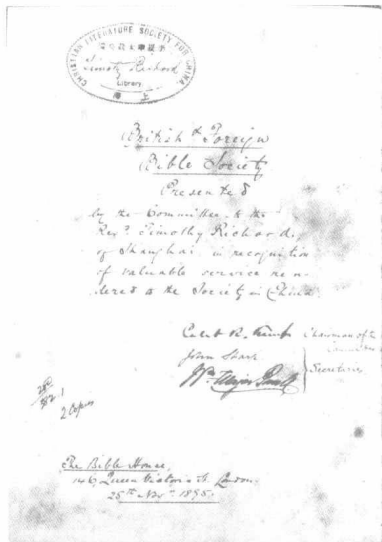 CHRISTIAN LITERATURE SOCIETY FOR CHINA
Timothy Richard
Library
British & Foreign
Bible Society
Presented
by the Committee to the
Revd. Timothy Richard,
of Shanghai in recognition
of valuable service ren-
dered to the Society in China.
Caleb R. Kemp Chairman of the
Committee
John Sharp
Wm. Major Paull Secretaries
2 Copies
The Bible House,
146 Queen Victoria St. London.
25th Novr. 1895.